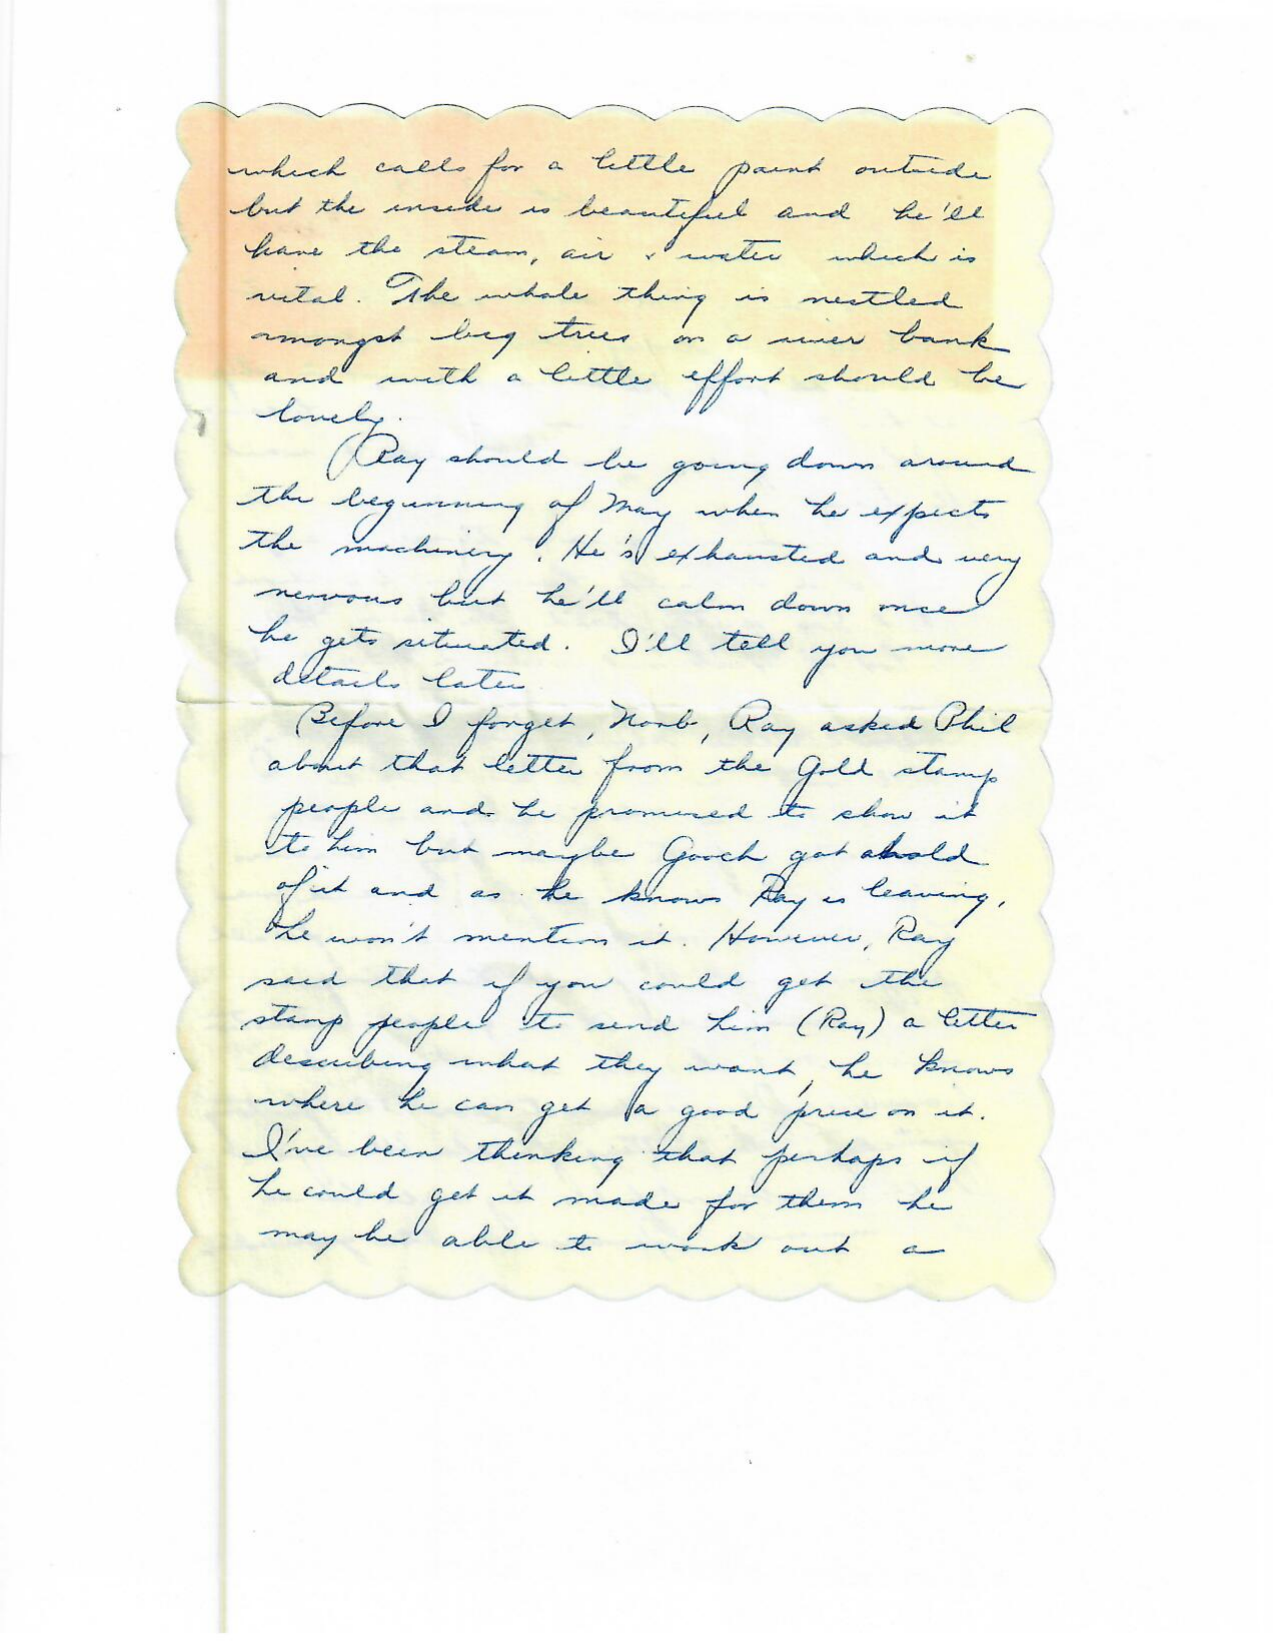 which calls for a little paint outside
but the inside is beautiful and he'll
have the steam, air & water which is
vital. The whole thing is nestled
amongst big trees on a river bank
and with a little effort should be
lovely.
Ray should be going down around
the beginning of May when he expects
the machinery. He's exhausted and very
nervous but he'll calm down once
he gets situated. I'll tell you more
details later
Before I forget, Norb, Ray asked Phil
about that letter from the Gold stamp
people and he promised to show it
to him but maybe Gooch got ahold
of it and as he knows Ray is leaving,
he won't mention it. However, Ray
said that if you could get the
stamp people to send him (Ray) a letter
describing what they want, he knows
where he can get a good price on it.
I've been thinking that perhaps if
he could get it made for them he
may be able to work out a